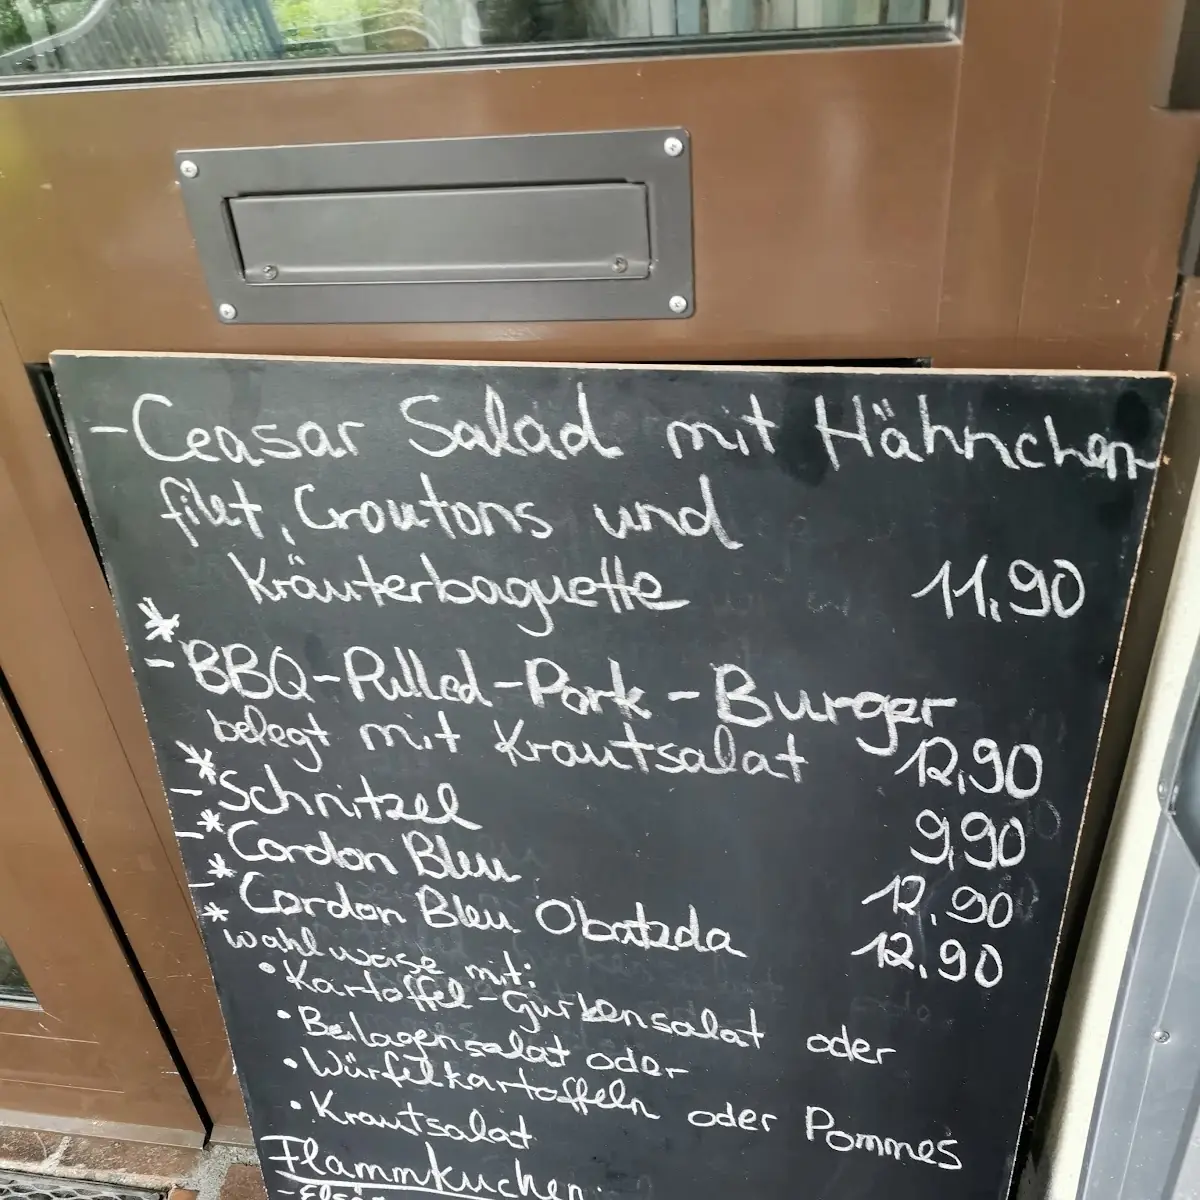 - Ceasar Salad mit Hähnchen-
filet, Croutons und
Kräuterbaguette 11,90
*
- BBQ-Pulled-Pork-Burger
belegt mit Krautsalat 12,90
*
- Schnitzel 9,90
*
- Cordon Bleu 12,90
*
- Cordon Bleu Obatzda 12,90
*
wahlweise mit:
• Kartoffel-Gurkensalat oder
• Beilagensalat oder
• Würfelkartoffeln oder Pommes
• Krautsalat
Flammkuchen: